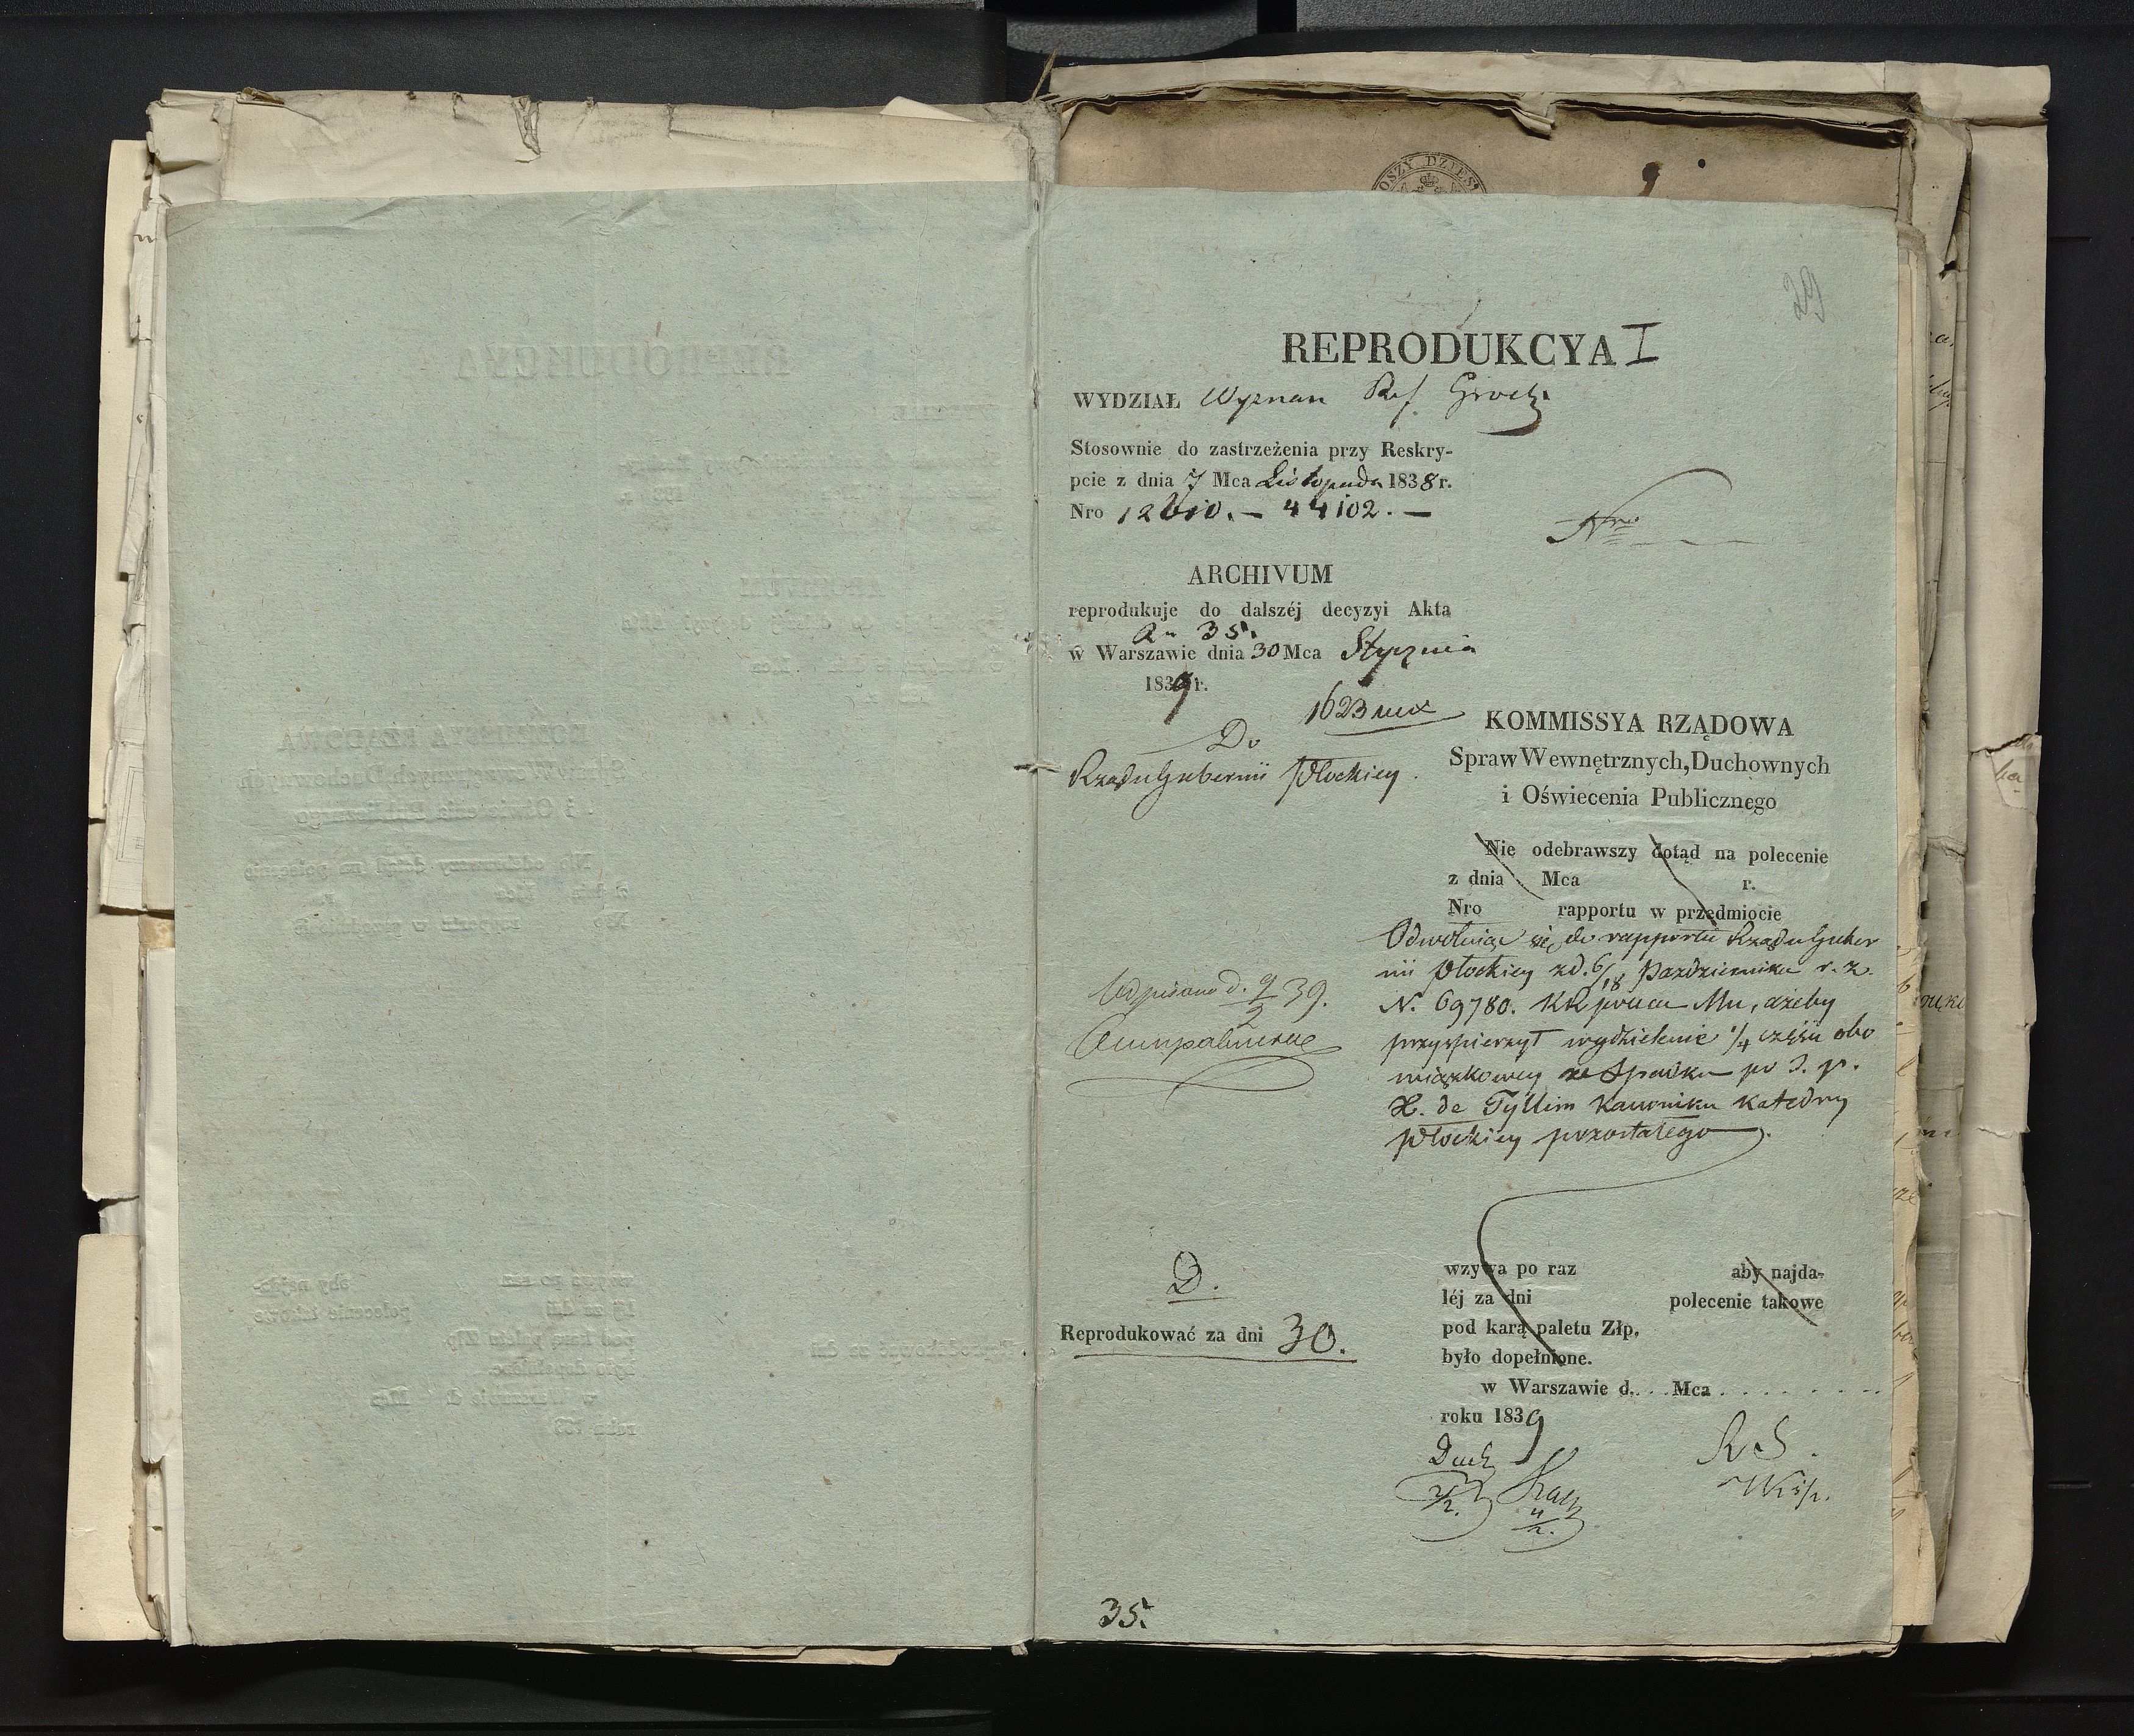 OSZY DZIES
29
REPRODUKCYA I
WYDZIAŁ Wyznan Ref Grock
Stosownie do zastrzeżenia przy Reskry-
pcie z dnia 7 Mca Listopada 1838 r.
Nro 12610. — 44102. —
Nro
ARCHIVUM
reprodukuje do dalszéj decyzyi Akta
35.
w Warszawie dnia 30 Mca Stycznia
1839 r.
1623
Do
Rządu Gubernii Płockiey.
KOMMISSYA RZĄDOWA
Spraw Wewnętrznych, Duchownych
i Oświecenia Publicznego
Nie odebrawszy dotąd na polecenie
z dnia Mca r.
Nro rapportu w przedmiocie
Odwołuiąc się do rapportu Rządu Guber
nii Płockiey z d. 6/18 Pazdziernika r. z.
N. 69780. KR poleca Mu, ażeby
przyspierzył wydzielenie 1/4 części obo
wiązkowey ze Spadku po ś. p.
X. de Tyllim Kanoniku Katedry
Płockiey pozostałego.
Odpisano d. 9/2 39.
D.
Reprodukować za dni 30.
wzywa po raz aby najda-
léj za dni polecenie takowe
pod karą paletu Złp.
było dopełnione.
w Warszawie d. . . . Mca . . . . . . . .
roku 1839
Duch
R S.
35.